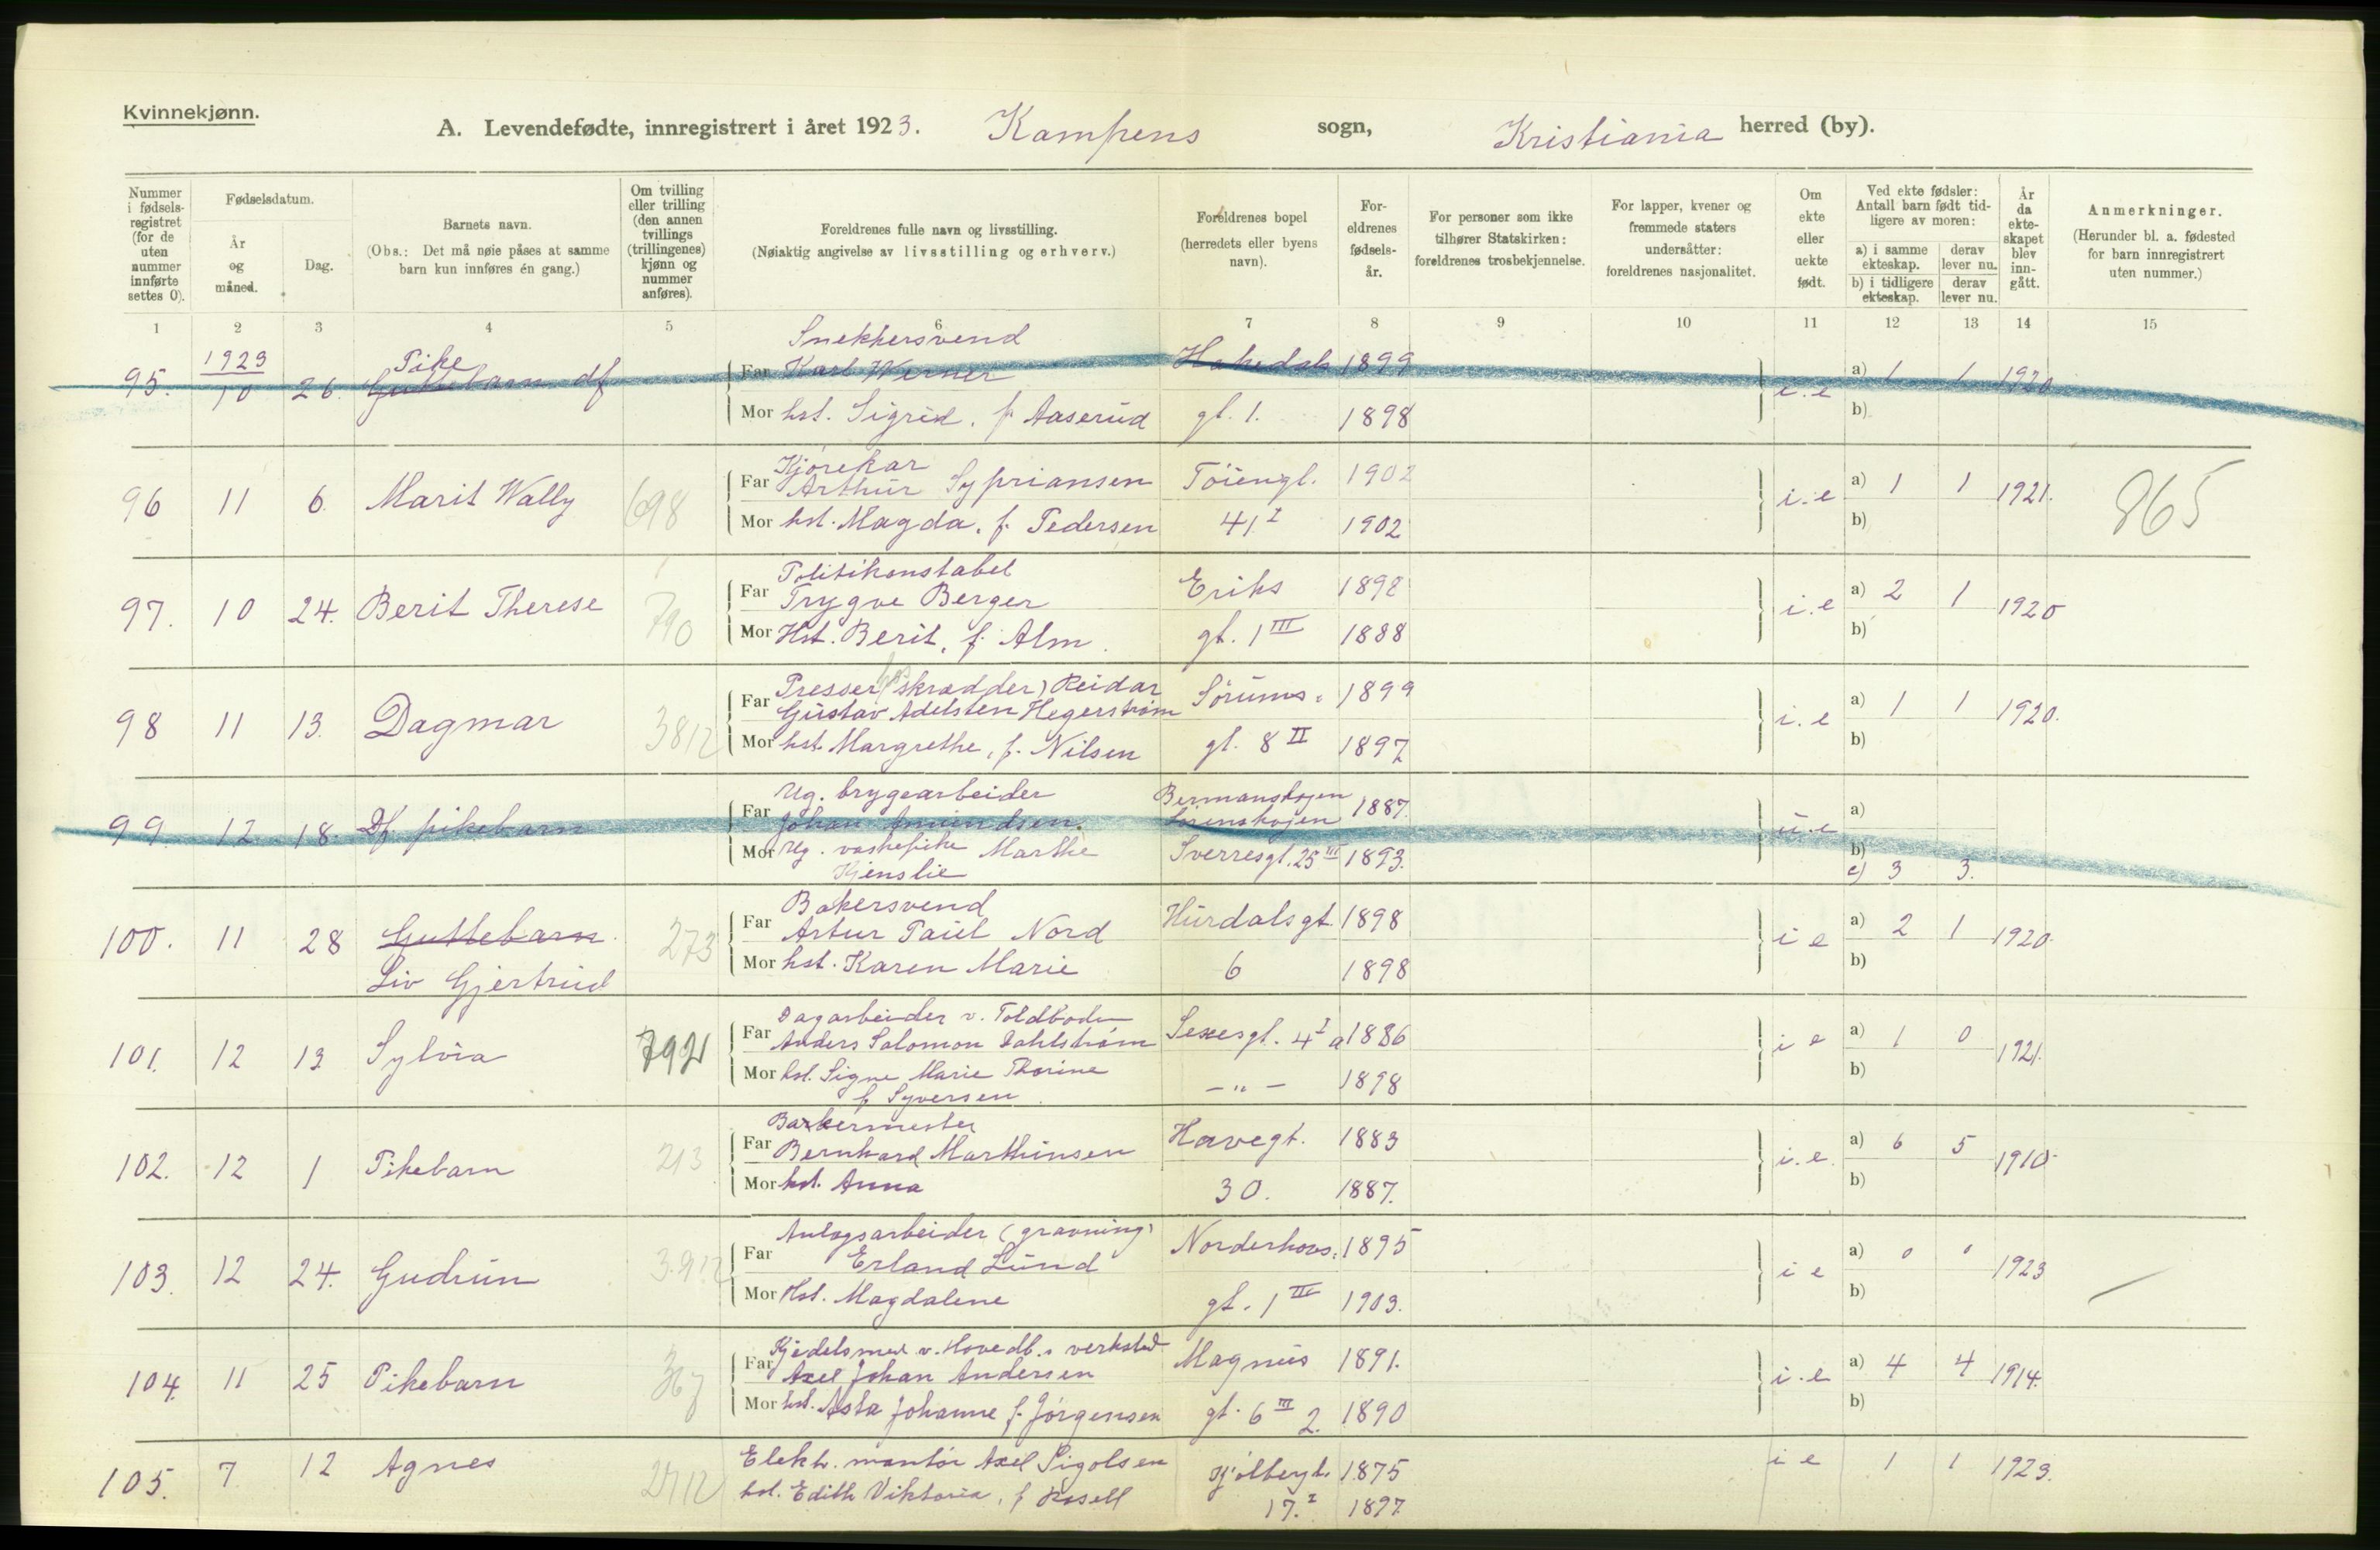 Kvinnekjønn.
A. Levendefødte, innregistrert i året 1923. Kampens sogn, Kristiania herred (by).
Nummer i fødselsregistret (for de uten nummer innførte settes 0).
Fødselsdatum.
År og måned.
Dag.
Barnets navn.
(Obs.: Det må nøie påses at samme barn kun innføres én gang.)
Om tvilling eller trilling (den annen tvillings (trillingenes) kjønn og nummer anføres).
Foreldrenes fulle navn og livsstilling.
(Nøiaktig angivelse av livsstilling og erhverv.)
Foreldrenes bopel (herredets eller byens navn).
Foreldrenes fødselsår.
For personer som ikke tilhører Statskirken: foreldrenes trosbekjennelse.
For lapper, kvener og fremmede staters undersåtter: foreldrenes nasjonalitet.
Om ekte eller uekte født.
Ved ekte fødsler: Antall barn født tidligere av moren:
a) i samme ekteskap. derav lever nu.
b) i tidligere ekteskap. derav lever nu.
År da ekteskapet blev inngått.
Anmerkninger.
(Herunder bl. a. fødested for barn innregistrert uten nummer.)
1 2 3 4 5 6 7 8 9 10 11 12 13 14 15
Snekkersvend
1923 Pike
95. 10 26. Guttebarn df Far Karl Werner Hakedals 1899 i.e a) 1 1 1920
Mor hst. Sigrid, f. Aaserud gt. 1. 1898 b)
Kjørekar
96 11 6. Marit Wally 698 Far Arthur Sypriansen Töiengt. 1902 i.e a) 1 1 1921. 865
Mor hst. Magda, f. Pedersen 41 I 1902 b)
Politikonstabel
97. 10 24. Berit Therese 790 Far Trygve Berger Eriks 1898 i.e a) 2 1 1920
Mor Hst. Berit, f. Alm. gt. 1 III 1888 b)
Presser (hos skrædder) Reidar
98 11 13. Dagmar 3812 Far Gustav Adelsten Hegerstrøm Sörums 1899 i.e a) 1 1 1920.
Mor hst. Margrethe, f. Nilsen gt. 8 II 1897 b)
Ug. brygearbeider Bermanskojen
99. 12 18. Df. pikebarn Far Johan Amundsen. 1887. u.e a)
Mor Ug. vaskepike Marthe Sverresgt. 25 III 1893. b)
Hjenslie c) 3 3.
Bakersvend
100. 11 28 Guttebarn 273 Far Artur Paul Nord Hurdalsgt. 1898 i e a) 2 1 1920.
Liv Gjertrud Mor hst. Karen Marie 6 1898 b)
Dagarbeider v. Toldboden
101. 12 13 Sylvia 792 Far Anders Salomon Dahlström Sexesgt. 4 I a 1886 i e a) 1 0 1921.
Mor hst. Signe Marie Thorine — " — 1898 b)
f. Syversen
Barkermester
102. 12 1 Pikebarn 213 Far Bernhard Marthinsen Havegt. 1883 i.e. a) 6 5 1910.
Mor hst. Anna 30. 1887. b)
Anlegsarbeider (gravning)
103. 12 24. Gudrun 3912 Far Erland Lund Norderhovs. 1895 i e a) 0 0 1923
Mor Hst. Magdalene gt. 1 III 1903. b)
Kjedelsmed v. Hovedb.s verksted
104. 11 25 Pikebarn 367 Far Axel Johan Andersen Magnus 1891. i.e a) 4 4 1914.
Mor hst. Asta Johanne f. Jörgensen gt. 6 III 2. 1890 b)
105. 7 12 Agnes 2712 Elektr. montör Axel Sigolsen Kjölbergt. 1875 i e 1 1 1923.
hst. Edith Viktoria, f. Rosell 17. I 1897